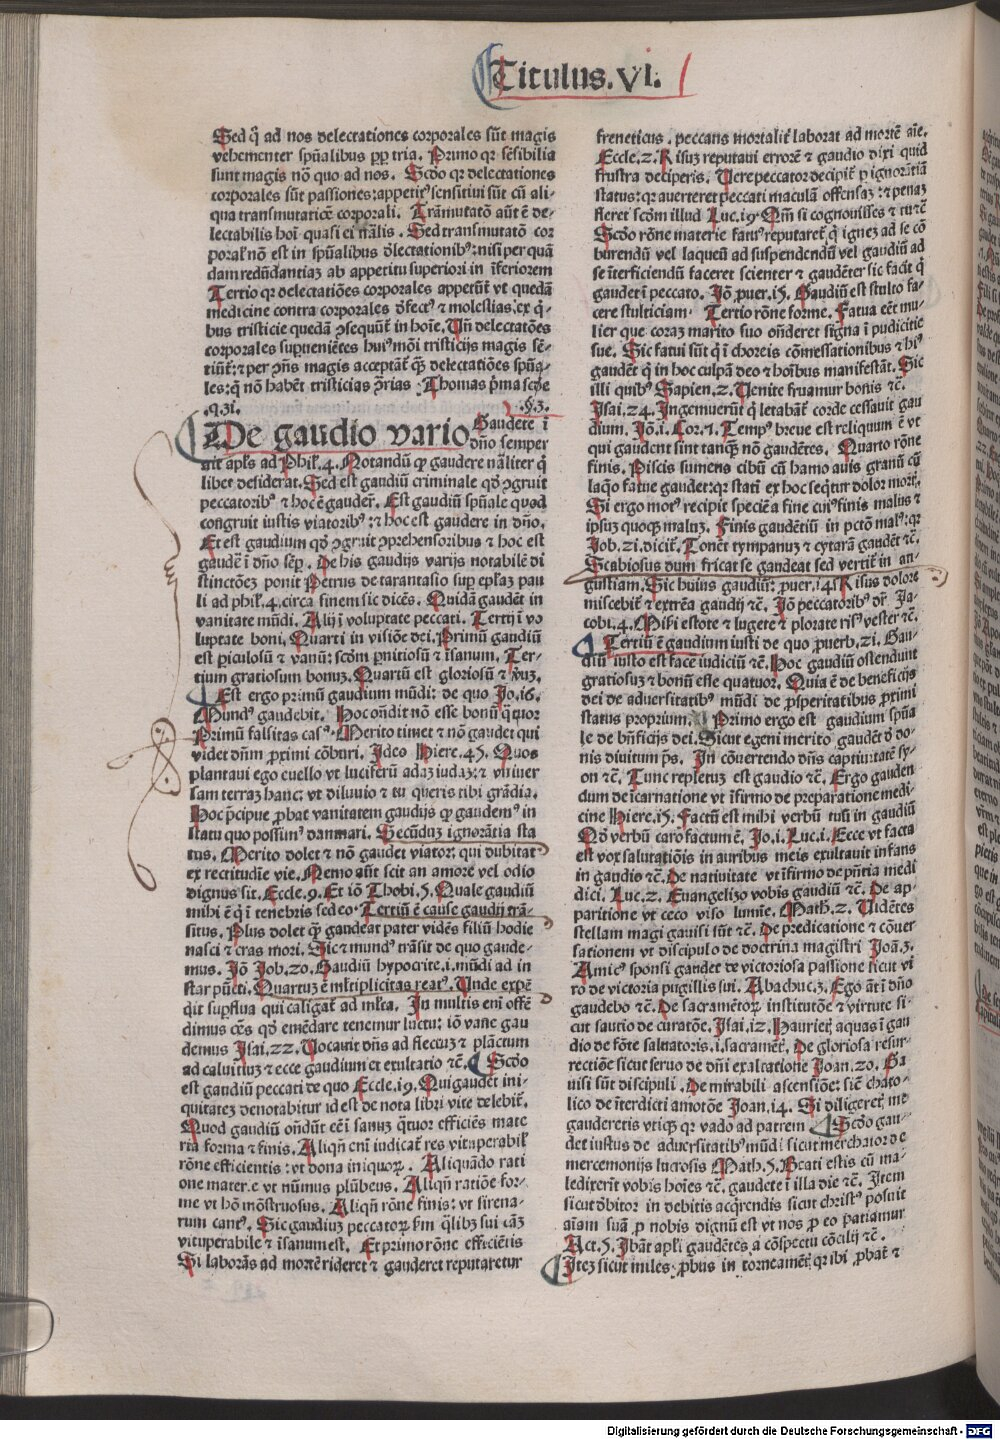 Titulus. VI.
Sed q̄ ad nos delectationes corporales sūt magis
vehementer spūalibus ꝓp̄ tria. Primo qꝛ sēsibilia
sunt magis nō quo ad nos. Scd̄o qꝛ delectationes
corporales sūt passiones: appetitꝰ sensitiui sūt cū ali-
qua transmutatiōe corporali. Trāmutatō aūt ē de-
lectabilis hoī quasi ei nālis. Sed transmutatō cor
poralꝭ nō est in spūalibus ꝺlectationibꝰ: nisi per quā
dam redūdantiaꝫ ab appetitu superiori in īferiorem
Tertio qꝛ delectatiōes corporales appetūt̄ vt quedā
medicine contra corporales ꝺfectꝰ ⁊ molestias. ex q̄-
bus tristicie quedā ꝯsequūt̄ in hoīe. Un̄ delectatōes
corporales supueniētes huiꝰmōi tristicijs magis sē-
tiūt̄: ⁊ per ꝯn̄s magis acceptāt̄ q̄ꝫ delectatiōes spūa-
les: q̄ nō habēt tristicias ꝯrias. Thomas p̄ma scd̄e
.q. 3i. .§. 3.
De gaudio vario Gaudete ī
dn̄o semper
ait apl̄s ad Phil̄. 4. Notandū ꝙ gaudere nāliter q̄
libet desiderat. Sed est gaudiū criminale qd̄ ꝯgruit
peccatoribꝰ ⁊ hoc ē gauder̄. Est gaudiū spūale quod
congruit iustis viatoribꝰ: ⁊ hoc est gaudere in dn̄o.
Et est gaudium qd̄ ꝯgruit ꝯprehensoribus ⁊ hoc est
gaudē ī dn̄o sēꝑ. De his gaudijs varijs notabilē di
stinctōeꝫ ponit Petrus de tarantasio suꝑ ep̄laꝫ pau
li ad phil̄. 4. circa finem sic dicēs. Quidā gaudēt in
vanitate mūdi. Alij ī voluptate peccati. Tertij ī vo
luptate boni. Quarti in visiōe dei. Primū gaudiū
est ꝑiculosū ⁊ vanū: scd̄m ꝑnitiosū ⁊ īsanum. Ter-
tium gratiosum bonuꝫ. Quartū est gloriosū ⁊ v̄uꝫ.
Est ergo primū gaudium mūdi: de quo Jo. 16.
Mundꝰ gaudebit. Hoc on̄dit nō esse bonū q̄ttuor
Primū falsitas casꝰ. Merito timet ⁊ nō gaudet qui
videt domū ꝓximi cōburi. Ideo Hiere. 45. Quos
plantaui ego euello vt luciferū adaꝫ iudaꝫ: ⁊ vniuer
sam terraꝫ hanc: vt diluuio ⁊ tu q̄ueris tibi grādia.
Hoc p̄cipue ꝓbat vanitatem gaudijs ꝙ gaudemꝰ in
statu quo possimꝰ damnari. Secūduꝫ ignorātia sta
tus. Merito dolet ⁊ nō gaudet viator: qui dubitat
ex rectitudīe vie. Nemo aūt scit an amore vel odio
dignus sit. Eccle. 9. Et iō Thobi. 5. Quale gaudiū
mihi ē q̄ ī tenebris sedeo. Tertiū ē cause gaudij trā-
situs. Plus dolet q̄ꝫ gaudeat pater vidēs filiū hodie
nasci ⁊ cras mori. Sic ⁊ mundꝰ trāsit de quo gaude-
mus. Jō Job. 20. Gaudiū hypocrite. i. mūdi ad in
star pūcti. Quartuꝫ ē ml̄tiplicitas reatꝰ. Unde expe
dit supflua qui caligat̄ ad ml̄ta. In multis eni offē
dimus oēs qd̄ emēdare tenemur luctu: iō vane gau
demus Isai. 22. Vocauit dn̄s ad fletuꝫ ⁊ plāctum
ad caluitiuꝫ ⁊ ecce gaudium et exultatio ⁊c̄. Scd̄o
est gaudiū peccati de quo Eccle. 19. Qui gaudet ini-
quitateꝫ denotabitur id est de nota libri vite delebit̄.
Quod gaudiū on̄dūt eē ī sanuꝫ q̄tuor efficiēs mate
ria forma ⁊ finis. Aliqn̄ eni iudicat̄ res vituperabil̄
rōne efficientis: vt dona iniquoꝝ. Aliquādo rati
one materie vt nūmus plūbeus. Aliqn̄ ratiōe for-
me vt hō mōstruosus. Aliqn̄ rōne finis: vt sirena-
rum cantꝰ. Sic gaudiuꝫ peccatoꝝ fm q̄libꝫ sui cāꝫ
vituperabile ⁊ īsanum est. Et primo rōne efficiētis
Si laborās ad mortē rideret ⁊ gauderet reputaretur
freneticus. peccans mortalit̄ laborat ad mortē aīe.
Eccle. 2. Risuꝫ reputaui errorē ⁊ gaudio dixi quid
frustra deciperis. Uere peccator decipit̄ ꝑ ignorātiā
status: qꝛ auerteret peccati maculā offensaꝫ: ⁊ penaꝫ
fleret scd̄m illud Luc. 19. Qm̄ si cognouisses ⁊ tu ⁊c̄
Scd̄o rōne materie fatuꝰ reputaret̄ q̄ igneꝫ ad se cō
burendū vel laqueū ad suspendendū vel gaudiū ad
se īterficiendū faceret scienter ⁊ gaudēter sic facit q̄
gaudet ī peccato. Jō ꝓuer. 15. Gaudiū est stulto fa-
cere stulticiam. Tertio rōne forme. Fatua eēt mu-
lier que coraꝫ marito suo on̄deret signa ī pudicitie
sue. Sic fatui sūt q̄ ī choreis cōmessationibus ⁊ hiꝰ
gaudēt q̄ in hoc culpā deo ⁊ hoībus manifestāt. Sic
illi quibꝰ Sapien. 2. Uenite fruamur bonis ⁊c̄.
Isai. 24. Ingemuerūt q̄ letabāt̄ corde cessauit gau
dium. Jō. i. Cor. 7. Tempꝰ breue est reliquum ē vt
qui gaudent sint tanq̄ꝫ nō gaudētes. Quarto rōne
finis. Piscis sumens cibū cū hamo auis granū cū
laq̄o fatue gaudet: qꝛ statī ex hoc seq̄tur dolor mort̄.
Si ergo motꝰ recipit speciē a fine cuiꝰ finis malus ⁊
ipsuꝫ quoqꝫ maluꝫ. Finis gaudētiū in pctō malꝰ: qꝛ
Job. 21. dicit̄. Tenēt tympanuꝫ ⁊ cytarā gaudēt ⁊c̄.
Scabiosus dum fricat se gaudeat sed vertit̄ in an-
gustiam. Sic huius gaudiū: ꝓuer. 14. Risus dolore
miscebit̄ ⁊ extrēa gaudij ⁊c̄. Jō peccatoribꝰ dr̄ Ja-
cobi. 4. Miseri estote ⁊ lugete ⁊ plorate risꝰ vester ⁊c̄.
Tertiū ē gaudium iusti de quo ꝓuerb. 21. Gau-
diū iusto est face iudiciū ⁊c̄. Hoc gaudiū ostendunt
gratiosuꝫ ⁊ bonū esse quatuor. Quia ē de beneficijs
dei de aduersitatibꝰ mūdi de ꝓsperitatibus ꝓximi
status proprium. Primo ergo est gaudium spūa
le de bn̄ficijs dei. Sicut egeni merito gaudēt ꝺ do-
nis diuitum p̄s. In cōuertendo dn̄s captiuitatē sy-
on ⁊c̄. Tunc repletuꝫ est gaudio ⁊c̄. Ergo gauden
dum de īcarnatione vt īfirmo de preparatione medi
cine Hiere. 15. Factū est mihi verbū tuū in gaudiū
Qd̄ verbū caro factum ē. Jo. i. Luc. i. Ecce vt facta
est vox salutatiōis in auribus meis exultauit infans
in gaudio ⁊c̄. De natiuitate vt īfirmo de pn̄tia medi
dici. Luc. 2. Euangelizo vobis gaudiū ⁊c̄. De ap-
paritione vt ceco viso lumīe. Math. 2. Uidētes
stellam magi gauisi sūt ⁊c̄. De predicatione ⁊ cōuer
sationem vt discipulo de doctrina magistri Joā. 3.
Amicꝰ sponsi gaudet de victoriosa passione sicut vi
ro de victoria pugillis sui. Abachuc. 3. Ego aūt ī dn̄o
gaudebo ⁊c̄. De sacramētoꝝ institutōe ⁊ virtute si-
cut sautio de curatōe. Isai. 12. Haurietꝭ aquas ī gau
dio de fōte saluatoris. i. sacramēt̄. De gloriosa resur-
rectiōe sicut seruo de dn̄i exaltatione Joan. 20. Ga
uisi sūt discipuli. De mirabili ascensiōe: sic̄ chato-
lico de īterdicti amotōe Joan. 14. Si diligeretꝭ me
gauderetis vtiqꝫ qꝛ vado ad patrem. Scd̄o gau-
det iustus de aduersitatibꝰ mūdi sicut merchator de
mercemonijs lucrosis Math. 5. Beati estis cū ma-
ledixerīt vobis hoīes ⁊c̄. gaudete ī illa die ⁊c̄. Item
sicut ꝺbitor in debitis acq̄rendis sicut christꝰ posuit
aīam suā ꝓ nobis dignū est vt nos ꝓ eo patiamur
Act. 5. Ibāt apl̄i gaudētes a cōspectu cōcilij ⁊c̄.
Iteꝫ sicut miles ꝓbus in torneamēt̄ qꝛ ibi ꝓbat̄ ⁊
Digitalisierung gefördert durch die Deutsche Forschungsgemeinschaft - DFG